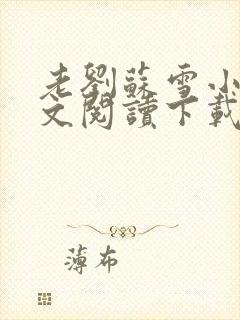 老劉蘇雪小
文閱讀下載
薄布